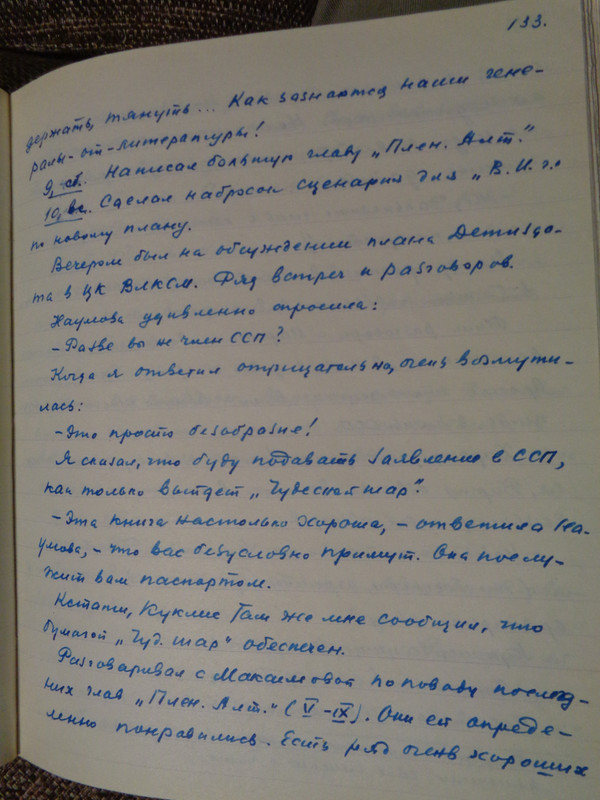 133.
держать, тянуть... Как зазнаются наши гене-
ралы-от-литературы!
9, сб. Написал большую главу „Плен. Алт."
10, вс. Сделал набросок сценария для „В. И. г."
по новому плану.
Вечером был на обсуждении плана Детизда-
та в ЦК ВЛКСМ. Ряд встреч и разговоров.
Наумова удивленно спросила:
- Разве вы не член ССП?
Когда я ответил отрицательно, очень возмути-
лась:
- Это просто безобразие!
Я сказал, что буду подавать заявление в ССП,
как только выйдет „Чудесный шар".
- Эта книга настолько хороша, - ответила На-
умова, - что вас безусловно примут. Она послу-
жит вам паспортом.
Кстати, Куклис там же мне сообщил, что
бумагой „Чуд. шар" обеспечен.
Разговаривал с Максимовой по поводу послед-
них глав „Плен. Алт." (V-IX). Они ей опреде-
ленно понравились. Есть ряд очень хороших